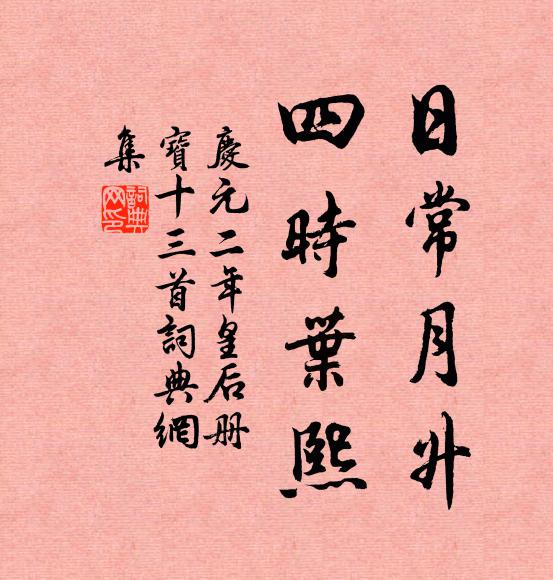 日常月升
四時葉熙
慶元二年皇后册
寶十三首詞典網
集
詞典
网印